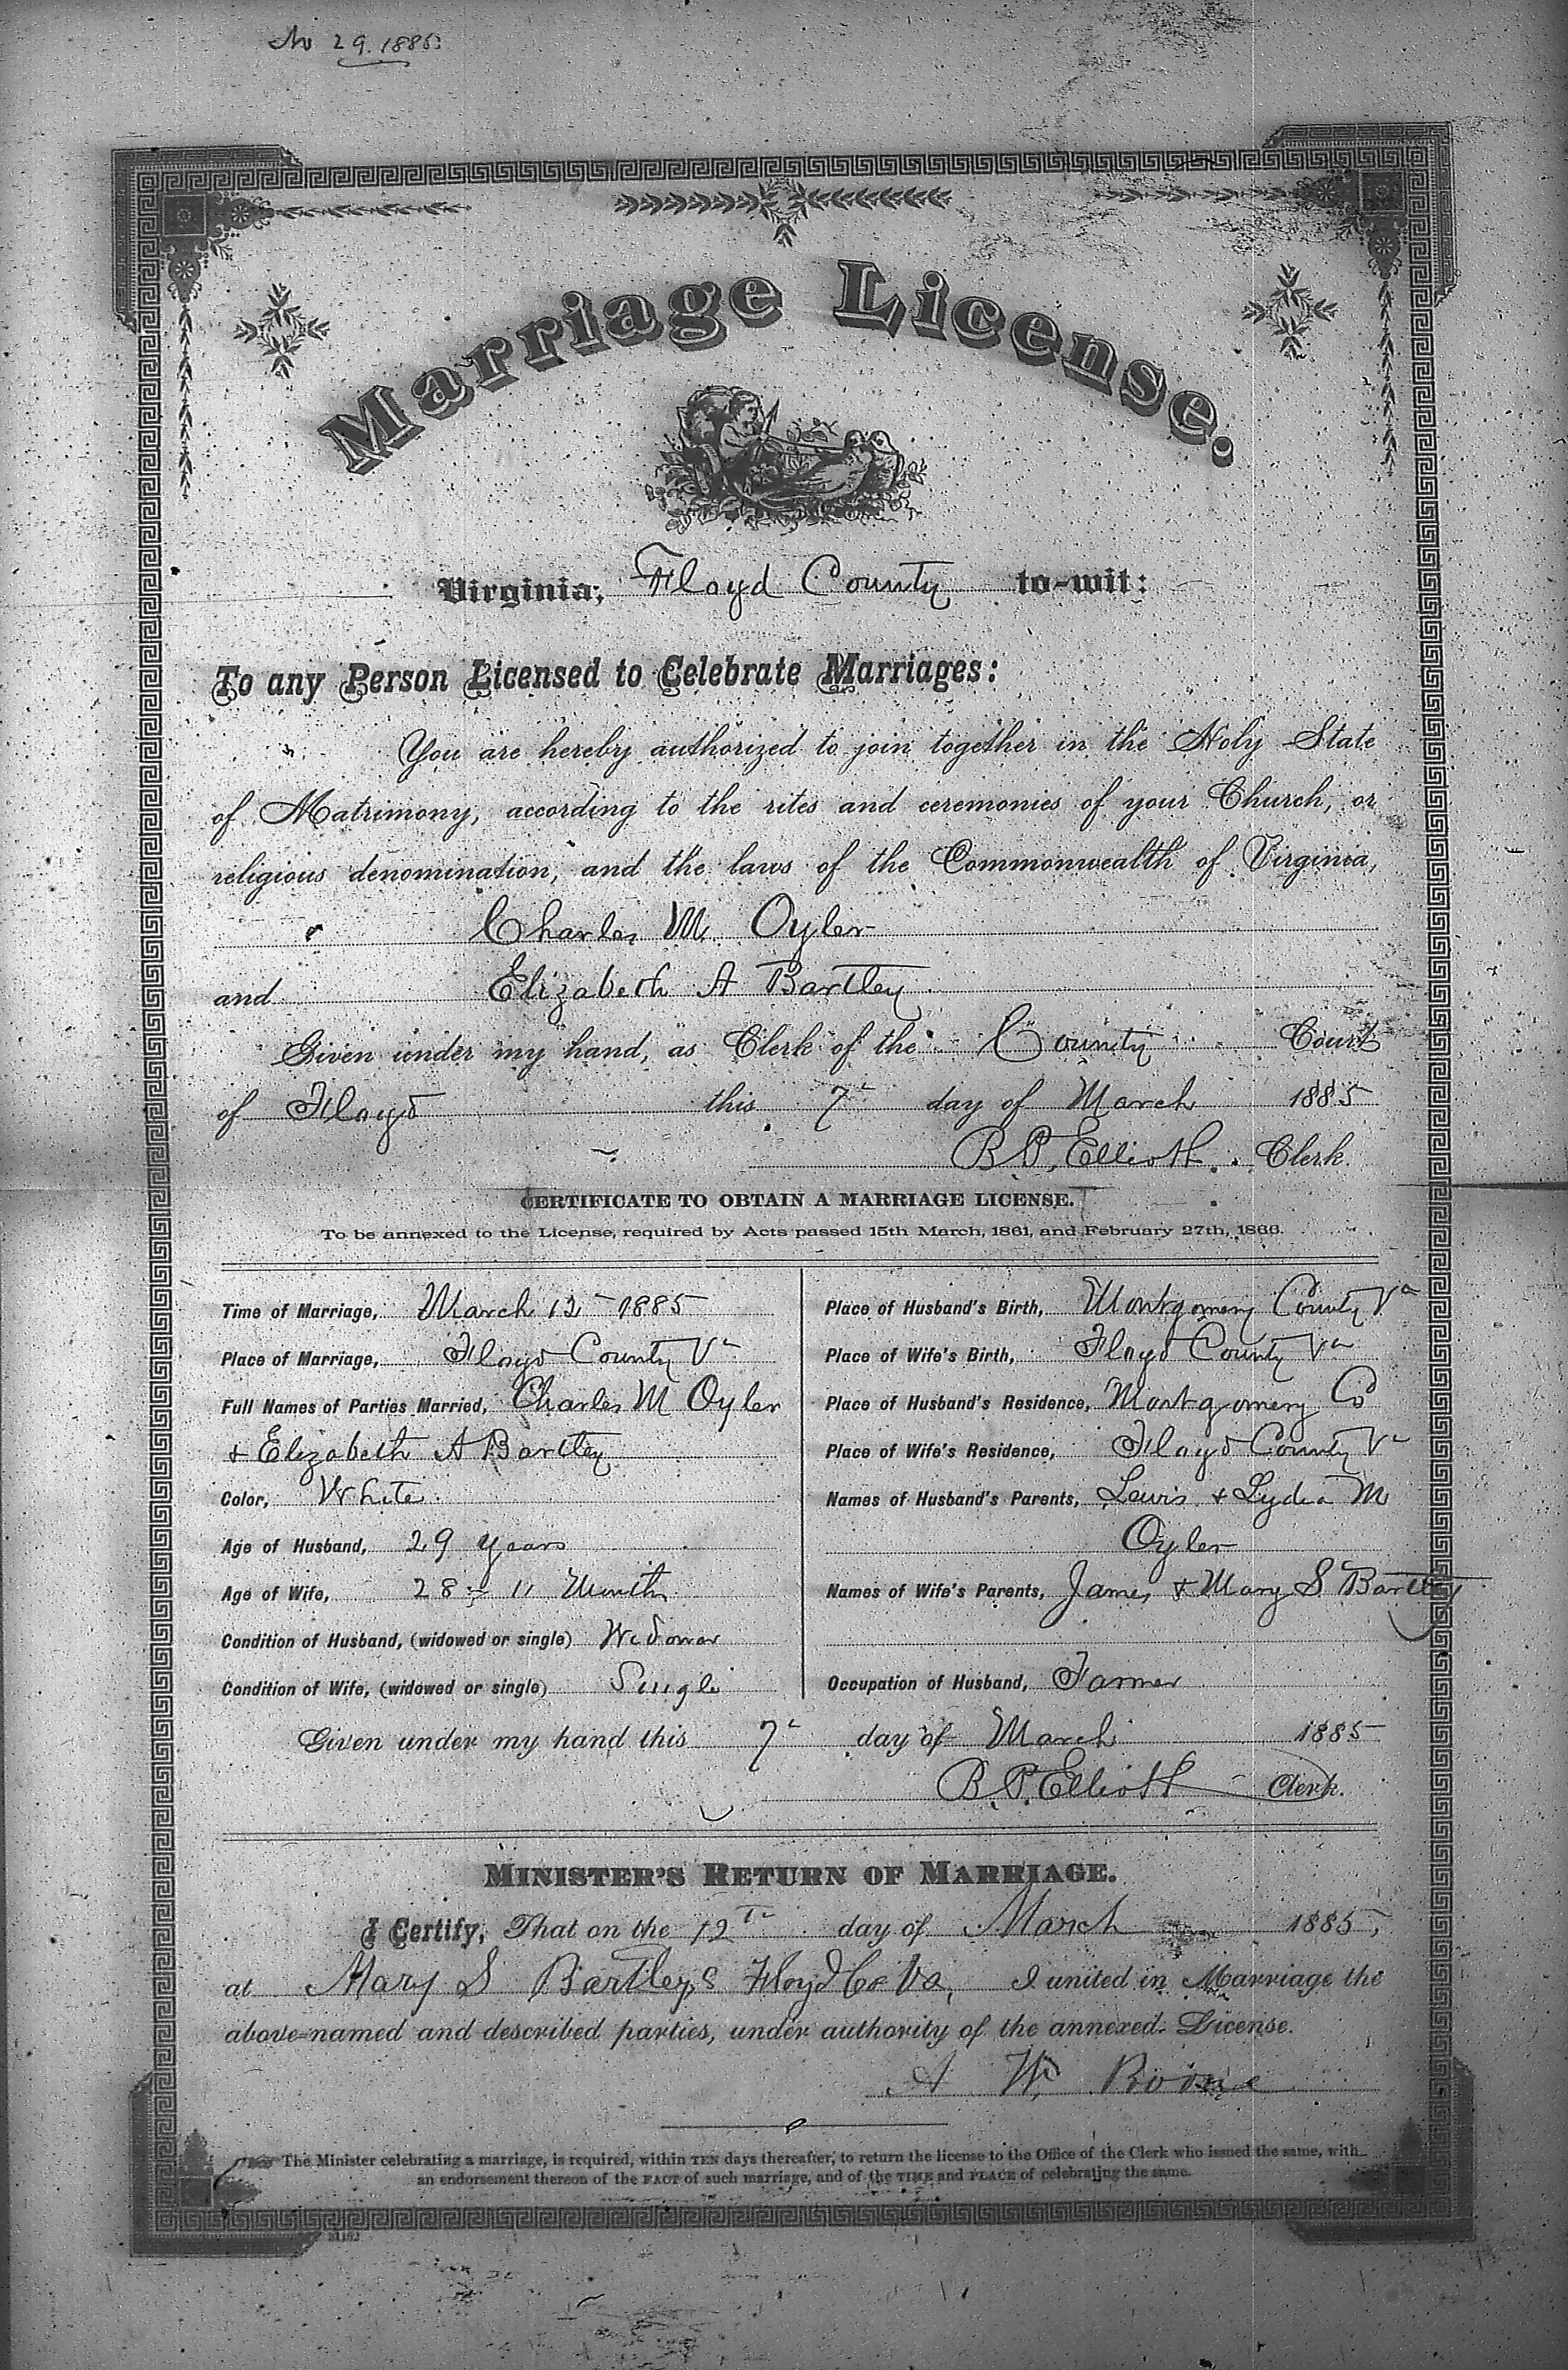 No 29. 1885
Marriage License.
Virginia, Floyd County to-wit:
To any Person Licensed to Celebrate Marriages:
You are hereby authorized to join together in the Holy State
of Matrimony, according to the rites and ceremonies of your Church, or
religious denomination, and the laws of the Commonwealth of Virginia,
Charles M. Oyler
and Elizabeth A Bartley
Given under my hand, as Clerk of the County Court
of Floyd this 7th day of March 1885
B. P. Elliott. Clerk.
CERTIFICATE TO OBTAIN A MARRIAGE LICENSE.
To be annexed to the License, required by Acts passed 15th March, 1861, and February 27th, 1866.
Time of Marriage, March 12 1885
Place of Marriage, Floyd County Va
Full Names of Parties Married, Charles M Oyler
+ Elizabeth A Bartley
Color, White
Age of Husband, 29 years
Age of Wife, 28 - 11 Month
Condition of Husband, (widowed or single) Widower
Condition of Wife, (widowed or single) Single
Place of Husband's Birth, Montgomery County Va
Place of Wife's Birth, Floyd County Va
Place of Husband's Residence, Montgomery Co
Place of Wife's Residence, Floyd County Va
Names of Husband's Parents, Lewis + Lydia M
Oyler
Names of Wife's Parents, James + Mary S Bartley
Occupation of Husband, Farmer
Given under my hand this 7th day of March 1885
B. P. Elliott Clerk.
MINISTER'S RETURN OF MARRIAGE.
I Certify, That on the 12th day of March 1885,
at Mary S Bartleys Floyd Co Va, I united in Marriage the
above-named and described parties, under authority of the annexed License.
A W Boone
The Minister celebrating a marriage, is required, within TEN days thereafter, to return the license to the Office of the Clerk who issued the same, with
an endorsement thereof of the FACT of such marriage, and of the TIME and PLACE of celebrating the same.